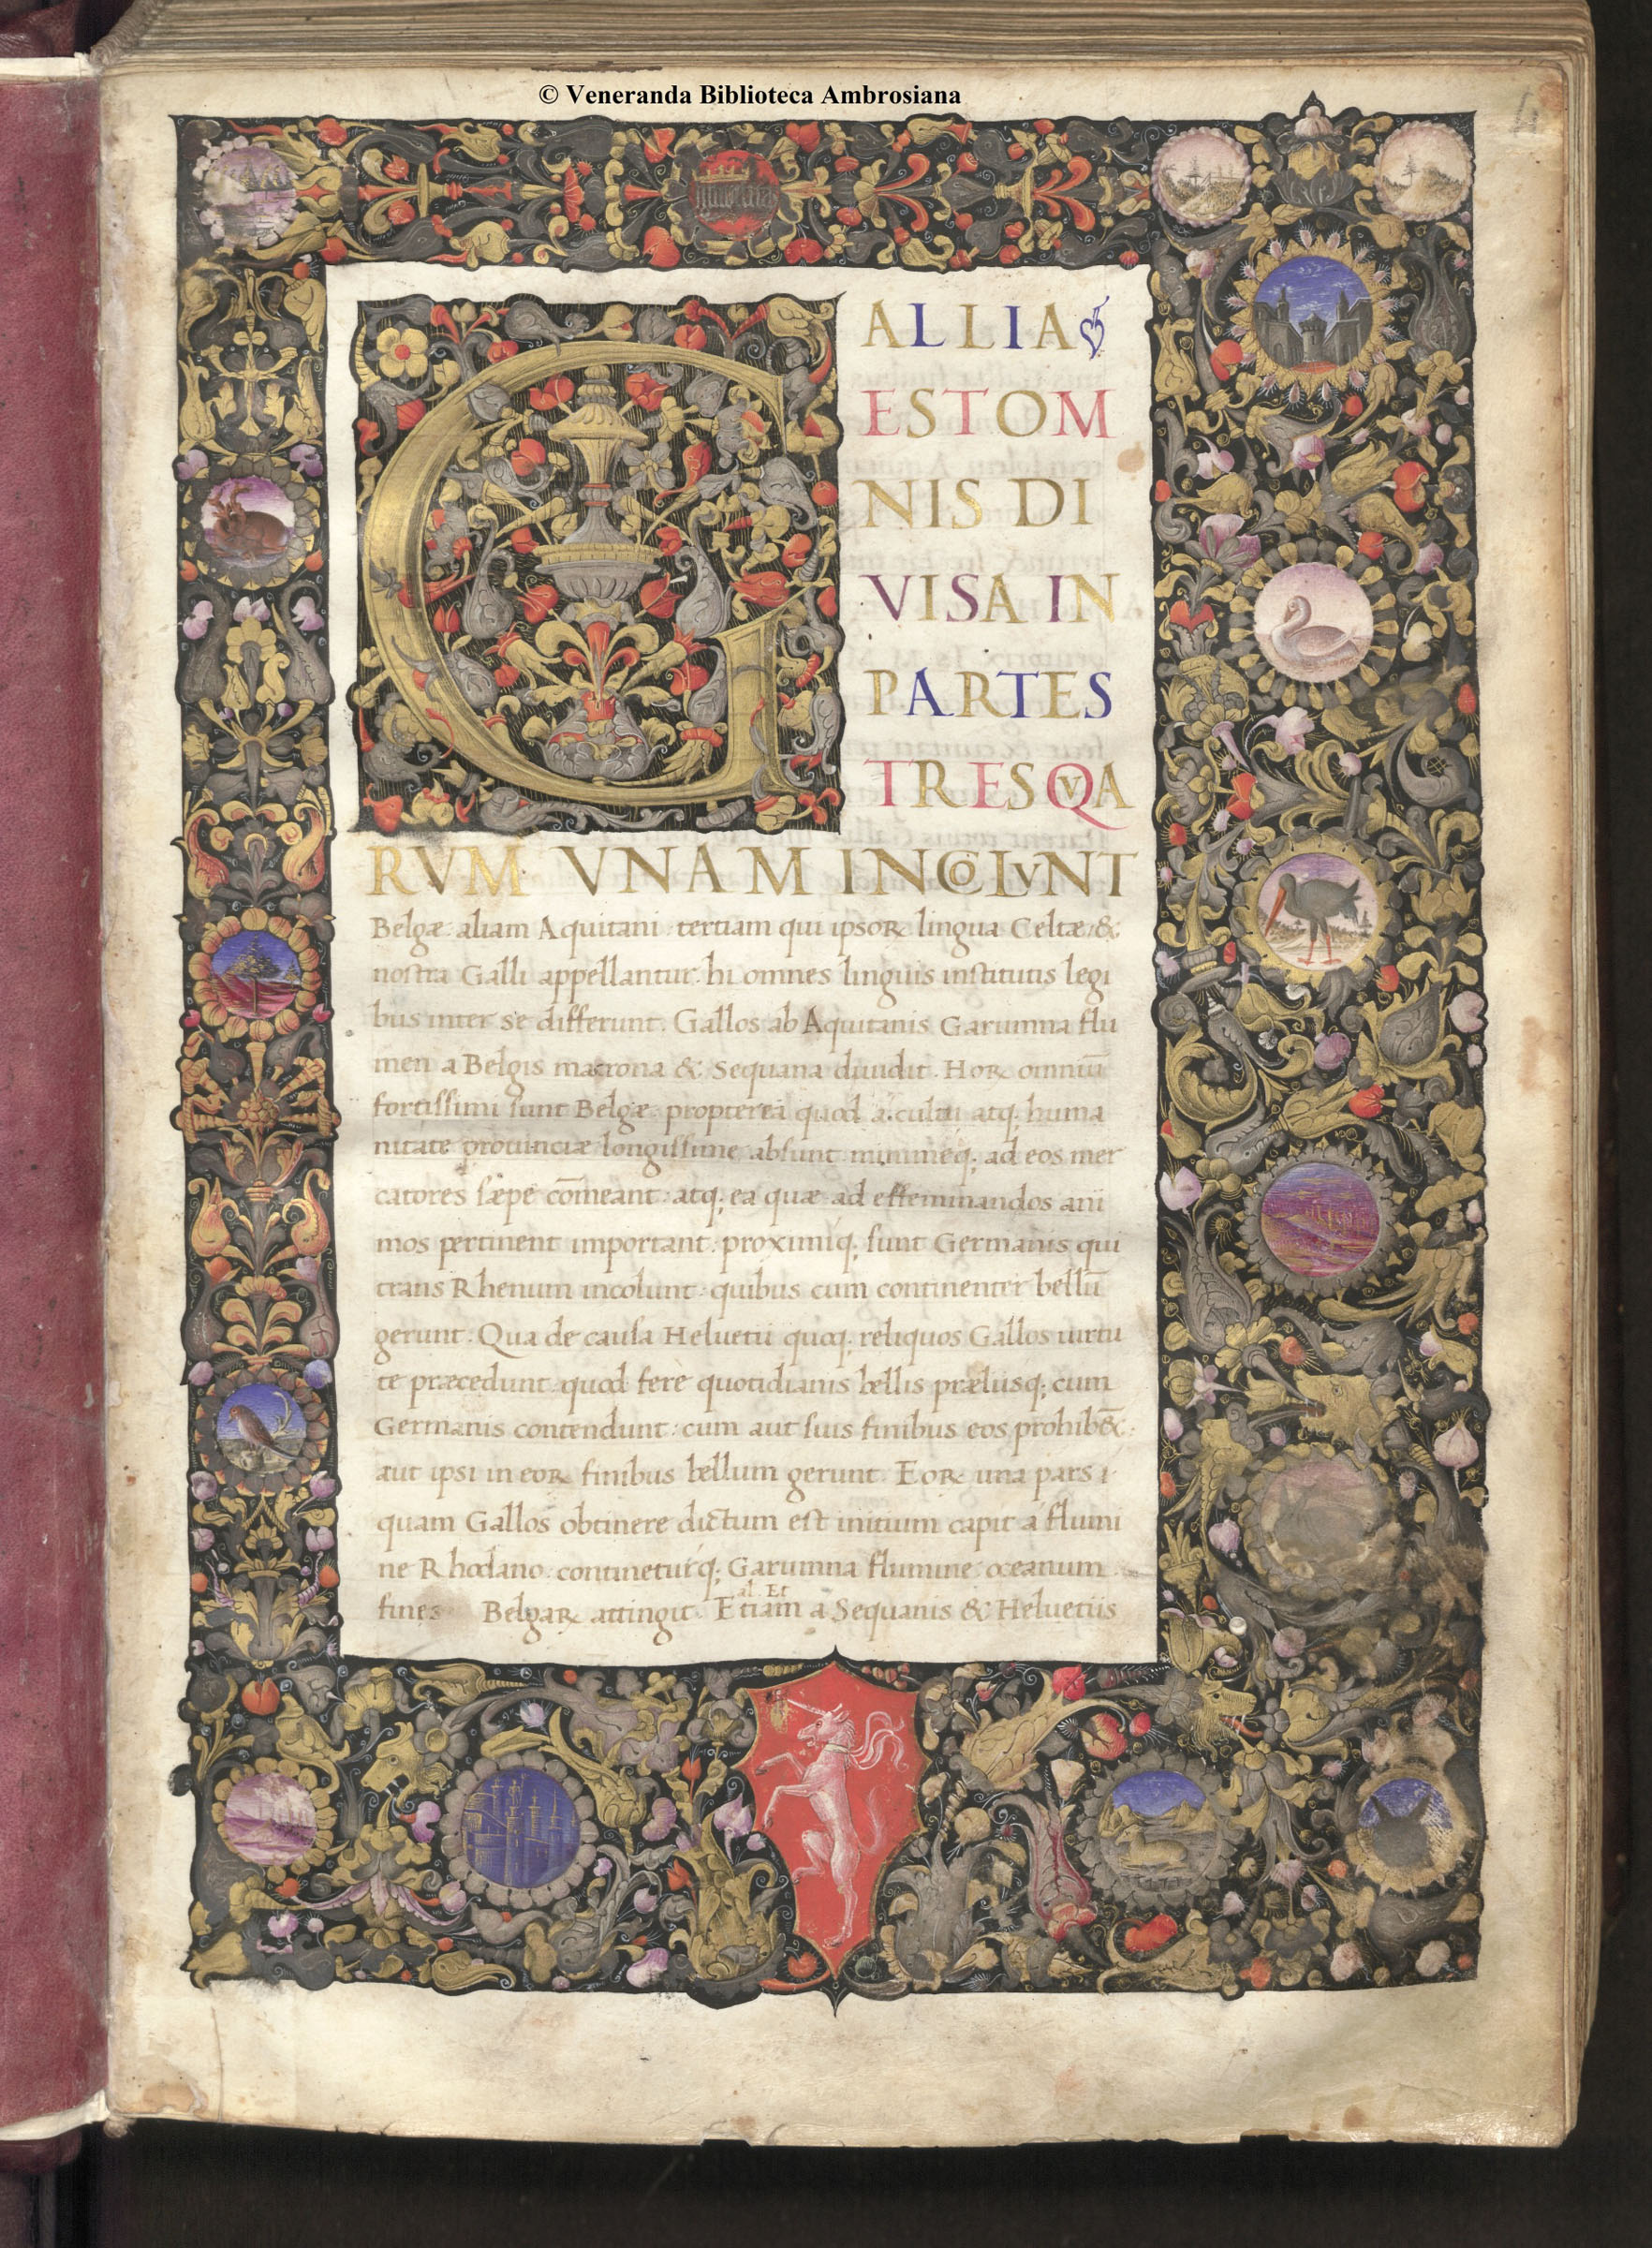 © Veneranda Biblioteca Ambrosiana
GALLIA
EST OM
NIS DI
VISA IN
PARTES
TRES QVA
RVM VNAM INCOLVNT
Belgæ aliam Aquitani tertiam qui ipsoꝝ lingua Celtæ &
nostra Galli appellantur. hi omnes linguis institutis legi
bus inter se differunt. Gallos ab Aquitanis Garumna flu
men a Belgis matrona & Sequana diuidit. Hoꝝ omniū
fortissimi sunt Belgæ propterea quod a cultu atq; huma
nitate prouinciæ longissime absunt minimeq; ad eos mer
catores sæpe cōmeant: atq; ea quæ ad effeminandos ani
mos pertinent important: proximiq; sunt Germanis qui
trans Rhenum incolunt: quibus cum continenter bellū
gerunt. Qua de causa Heluetii quoq; reliquos Gallos uirtu
te præcedunt quod ferè quotidianis bellis præliisq; cum
Germanis contendunt: cum aut suis finibus eos prohibēt:
aut ipsi in eoꝝ finibus bellum gerunt. Eoꝝ una pars
quam Gallos obtinere dictum est initium capit a flumi
ne Rhodano: contineturq; Garumna flumine: oceanum
al. Et
fines Belgaꝝ attingit. Etiam a Sequanis & Heluetiis